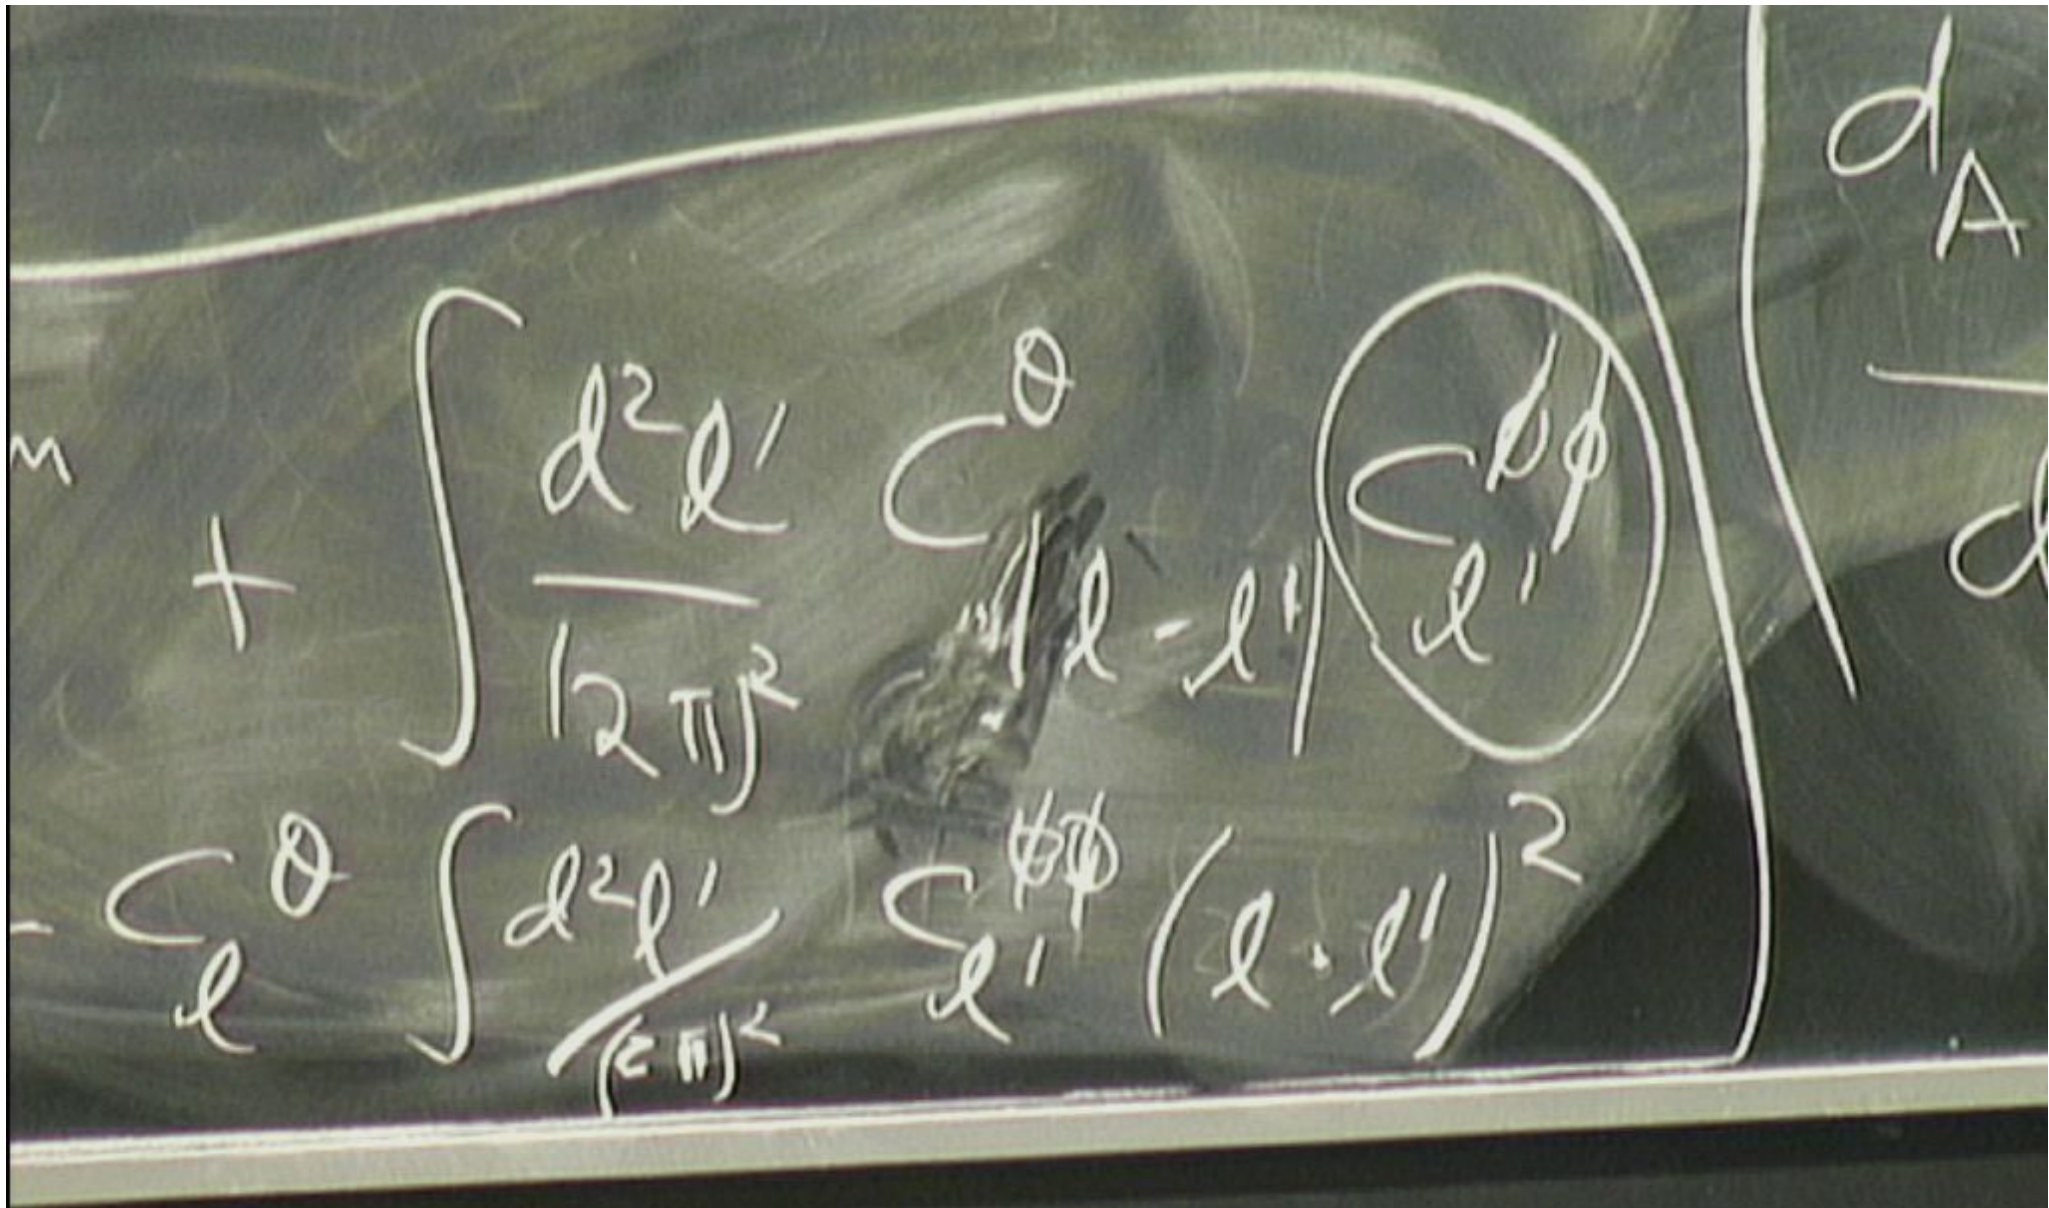 m + ∫ d²ℓ'/(2π)² C^θ_{|ℓ-ℓ'|} C^{ϕϕ}_{ℓ'}
- C^θ_ℓ ∫ d²ℓ'/(2π)² C^{ϕϕ}_{ℓ'} (ℓ·ℓ')²
d_A
d